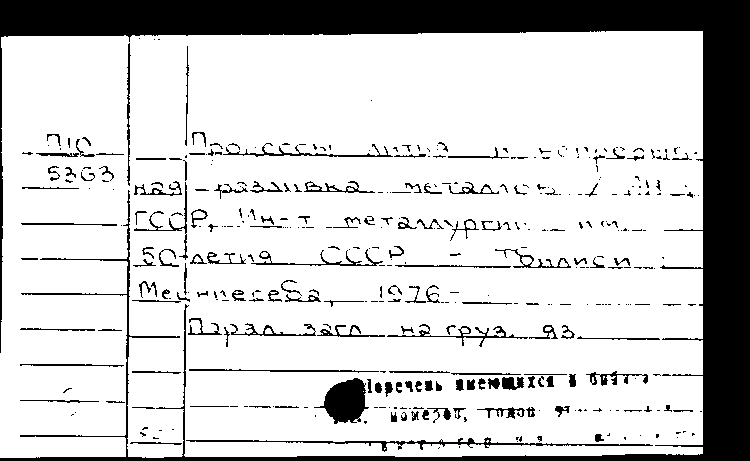 П10
5363
Процессы литья и непрерыв-
ная разливка металлов / АН
ГССР, Ин-т металлургии им.
50-летия СССР - Тбилиси :
Мецниереба, 1976-
Парал. загл. на груз. яз.
Перечень имеющихся в библ
номеров, годов